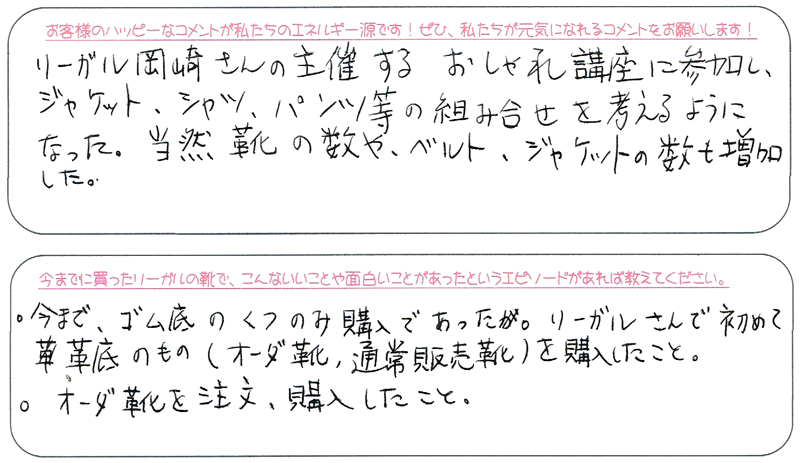 お客様のハッピーなコメントが私たちのエネルギー源です！ぜひ、私たちが元気になれるコメントをお願いします！
リーガル岡崎さんの主催する おしゃれ講座に参加し、
ジャケット、シャツ、パンツ等の組み合せを考えるように
なった。当然靴の数や、ベルト、ジャケットの数も増加
した。
今までに買ったリーガルの靴で、こんないいことや面白いことがあったというエピソードがあれば教えてください。
。今まで、ゴム底のくつのみ購入であったが。リーガルさんで初めて
革底のもの（オーダ靴，通常販売靴）を購入したこと。
。オーダ靴を注文、購入したこと。